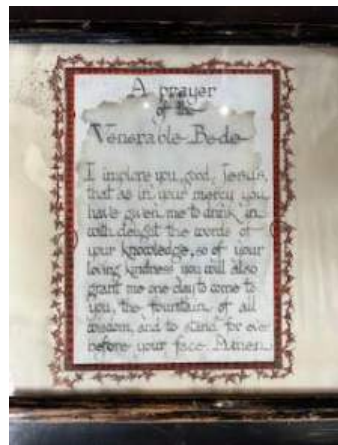 A prayer
of the
Venerable Bede
I implore you, good Jesus,
that as in your mercy you
have given me to drink in
with delight the words of
your knowledge, so of your
loving kindness you will also
grant me one day to come to
you, the fountain of all
wisdom, and to stand for ever
before your face. Amen.